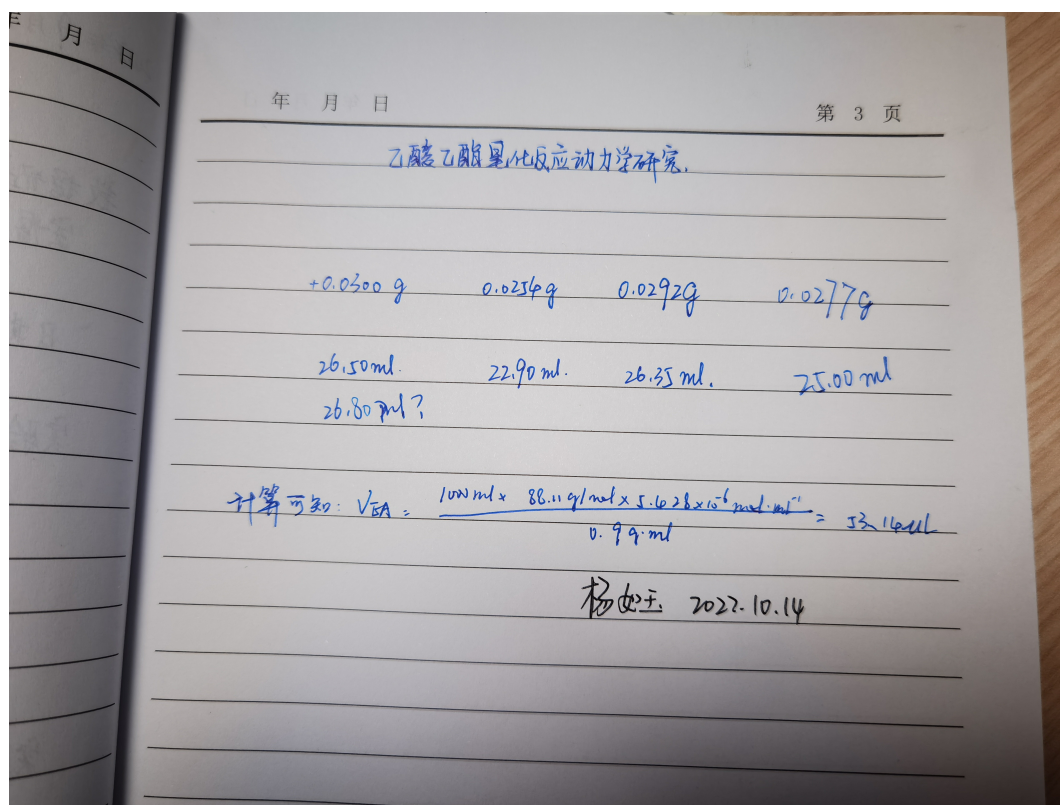 年 月 日
年 月 日
第 3 页
乙酸乙酯皂化反应动力学研究.
+0.0300 g 0.0254g 0.0292g 0.0277g
26.50ml. 22.90ml. 26.35ml. 25.00ml
26.80ml?
计算可知: VEA = 100ml× 88.11g/mol × 5.428×10⁻⁶ mol·ml⁻¹ = 53.14uL
0.9g·ml
2022.10.14